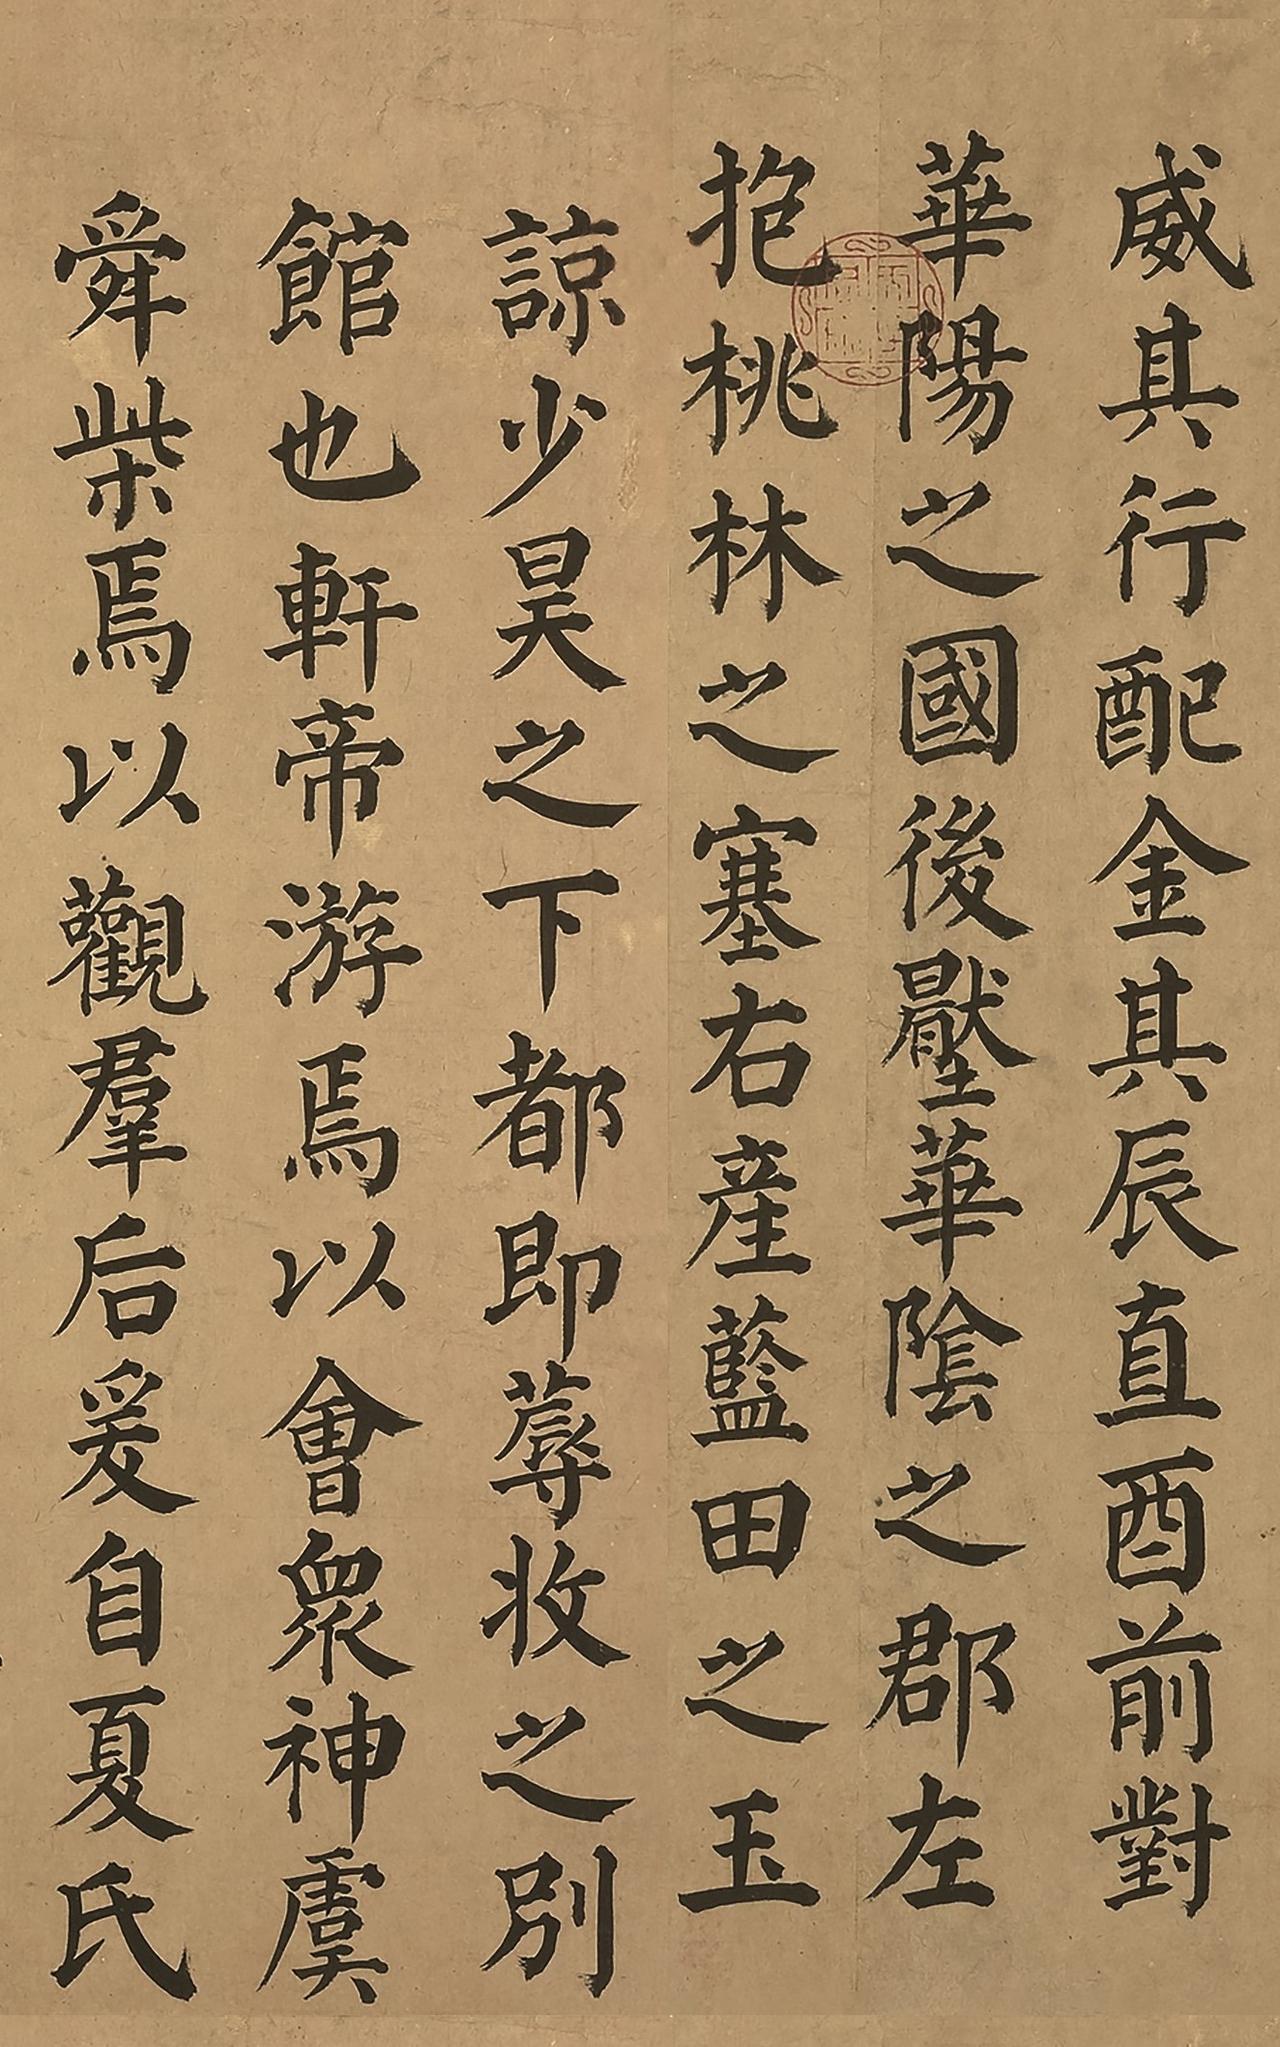 威其行配金其辰直酉前對
華陽之國後壓華陰之郡左
抱桃林之塞右産藍田之玉
諒少昊之下都即蓐收之別
館也軒帝游焉以會衆神虞
舜柴焉以觀羣后爰自夏氏